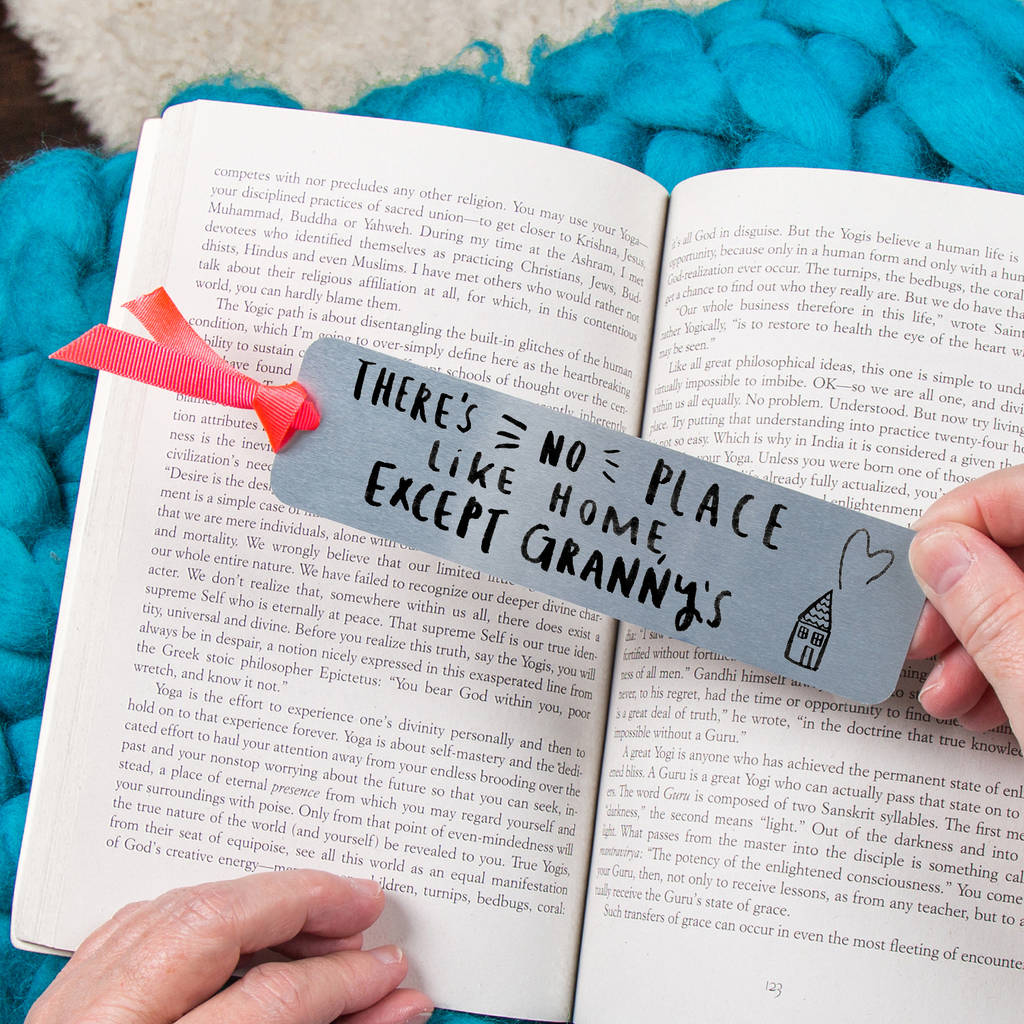 competes with nor precludes any other religion. You may use your Yoga—
your disciplined practices of sacred union—to get closer to Krishna, Jesus,
Muhammad, Buddha or Yahweh. During my time at the Ashram, I met
devotees who identified themselves as practicing Christians, Jews, Bud-
dhists, Hindus and even Muslims. I have met others who would rather not
talk about their religious affiliation at all, for which, in this contentious
world, you can hardly blame them.
The Yogic path is about disentangling the built-in glitches of the human
condition, which I'm going to over-simply define here as the heartbreaking
ability to sustain schools of thought over the cen-
have found inherently
tion attributes
ness is the
civilization's
"Desire is the
ment is a simple case
that we are mere individuals, alone with
and mortality. We wrongly believe that our limited
our whole entire nature. We have failed to recognize our deeper divine char-
acter. We don't realize that, somewhere within us all, there does exist a
supreme Self who is eternally at peace. That supreme Self is our true iden-
tity, universal and divine. Before you realize this truth, say the Yogis, you will
always be in despair, a notion nicely expressed in this exasperated line from
the Greek stoic philosopher Epictetus: "You bear God within you, poor
wretch, and know it not."
Yoga is the effort to experience one's divinity personally and then to
hold on to that experience forever. Yoga is about self-mastery and the dedi-
cated effort to haul your attention away from your endless brooding over the
past and your nonstop worrying about the future so that you can seek, in-
stead, a place of eternal presence from which you may regard yourself and
your surroundings with poise. Only from that point of even-mindedness will
the true nature of the world (and yourself) be revealed to you. True Yogis,
from their seat of equipoise, see all this world as an equal manifestation
of God's creative energy—men, children, turnips, bedbugs, coral:
THERE'S NO PLACE
LIKE HOME,
EXCEPT GRANNY'S
it's all God in disguise. But the Yogis believe a human life is
opportunity, because only in a human form and only with a
God-realization ever occur. The turnips, the bedbugs, the coral
get a chance to find out who they really are. But we do have
"Our whole business therefore in this life," wrote Saint
rather Yogically, "is to restore to health the eye of the heart
may be seen."
Like all great philosophical ideas, this one is simple to
virtually impossible to imbibe. OK—so we are all one, and
within us all equally. No problem. Understood. But now try living
place. Try putting that understanding into practice twenty-four
not so easy. Which is why in India it is considered a given
your Yoga. Unless you were born one of those
already fully actualized, you'
enlightenment
"I saw
fortified without
ness of all men." Gandhi himself
never, to his regret, had the time or opportunity to find one.
is a great deal of truth," he wrote, "in the doctrine that true
impossible without a Guru."
A great Yogi is anyone who has achieved the permanent state of
ened bliss. A Guru is a great Yogi who can actually pass that state on to
ers. The word Guru is composed of two Sanskrit syllables. The first
"darkness," the second means "light." Out of the darkness and into
light. What passes from the master into the disciple is something
mantravirya: "The potency of the enlightened consciousness." You come
your Guru, then, not only to receive lessons, as from any teacher, but to
tually receive the Guru's state of grace.
Such transfers of grace can occur in even the most fleeting of
123